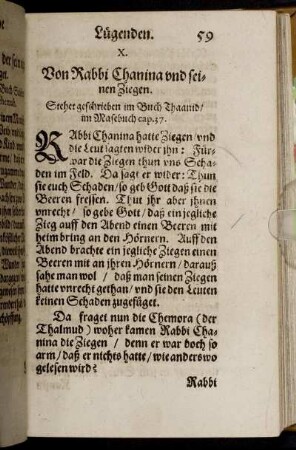 Lügenden. 59
X.
Von Rabbi Chanina vnd sei-
nen Ziegen.
Stehet geschrieben im Buch Thaanid/
im Masebuch cap. 37.
RAbbi Chanina hatte Ziegen/ vnd
die Leut sagten wider jhn: Für-
war die Ziegen thun vns Scha-
den im Feld. Da sagt er wider: Thun
sie euch Schaden/ so geb Gott daß sie die
Beeren fressen. Thut jhr aber jhnen
vnrecht/ so gebe Gott/ daß ein jegliche
Zieg auff den Abend einen Beeren mit
heim bring an den Hörnern. Auff den
Abend brachte ein jegliche Ziegen einen
Beeren mit an jhren Hörnern/ darauß
sahe man wol/ daß man seinen Ziegen
hatte vnrecht gethan/ vnd sie den Leuten
keinen Schaden zugefüget.
Da fraget nun die Chemora (der
Thalmud) woher kamen Rabbi Cha-
nina die Ziegen/ denn er war doch so
arm/ daß er nichts hatte/ wie anders wo
gelesen wird?
Rabbi